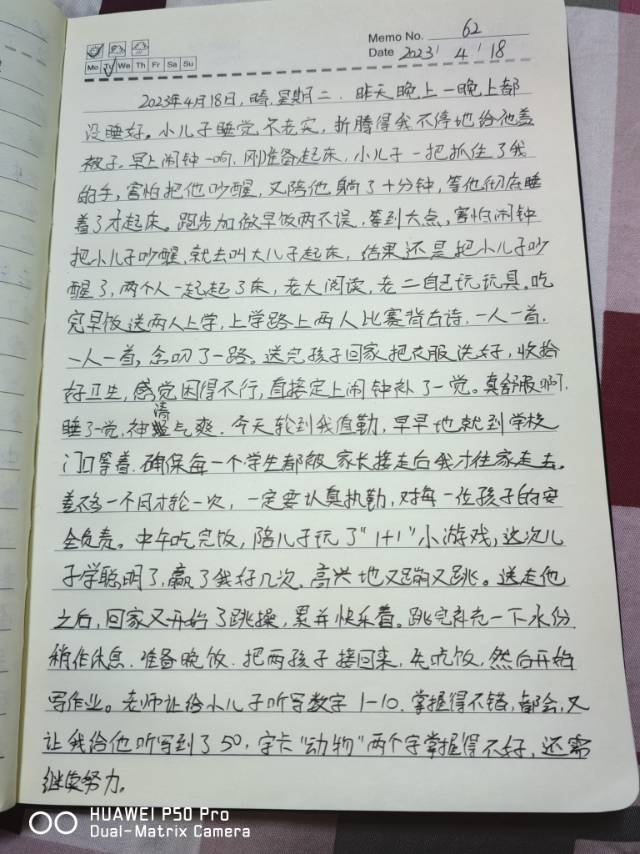 Memo No. 62
Mo Tu We Th Fr Sa Su
Date 2023 / 4 / 18
2023年4月18日,晴,星期二.昨天晚上一晚上都
没睡好。小儿子睡觉不老实,折腾得我不停地给他盖
被子.早上闹钟一响.刚准备起床,小儿子一把抓住了我
的手,害怕把他吵醒,又陪他躺了十分钟,等他彻底睡
着了才起床。跑步加做早饭两不误,等到六点,害怕闹钟
把小儿子吵醒,就去叫大儿子起床,结果还是把小儿子吵
醒了,两个人一起起了床,老大阅读,老二自己玩玩具。吃
完早饭送两人上学,上学路上两人比赛背古诗.一人一首.
一人一首,念叨了一路。送完孩子回家把衣服洗好,收拾
好卫生,感觉困得不行,直接定上闹钟补了一觉。真舒服啊.
睡了一觉,神清气爽.今天轮到我值勤,早早地就到学校
门口等着.确保每一个学生都被家长接走后我才往家走去。
差不多一个月才轮一次,一定要认真执勤,对每一位孩子的安
全负责。中午吃完饭,陪儿子玩了"1+1"小游戏,这次儿
子学聪明了,赢了我好几次.高兴地又蹦又跳。送走他
之后,回家又开始了跳操,累并快乐着。跳完补充一下水份.
稍作休息.准备晚饭.把两孩子接回来,先吃饭,然后开始
写作业。老师让给小儿子听写数字1-10.掌握得不错,都会,又
让我给他听写到了50,字卡"动物"两个字掌握得不好,还需
继续努力.
HUAWEI P50 Pro
Dual-Matrix Camera